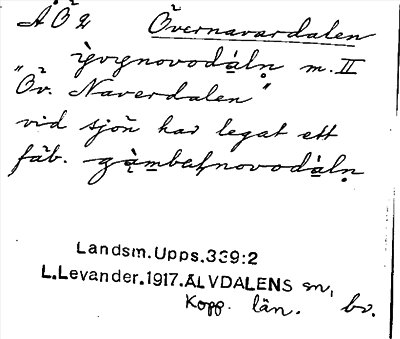 ÅÖ2 Övernavardalen
ỳvynovodàln m. II
"Öv. Naverdalen"
vid sjön har legat ett
fäb. gàmbalnovodàln
Landsm.Upps.339:2
L.Levander.1917.ÄLVDALENS sn,
Kopp. län. bv.